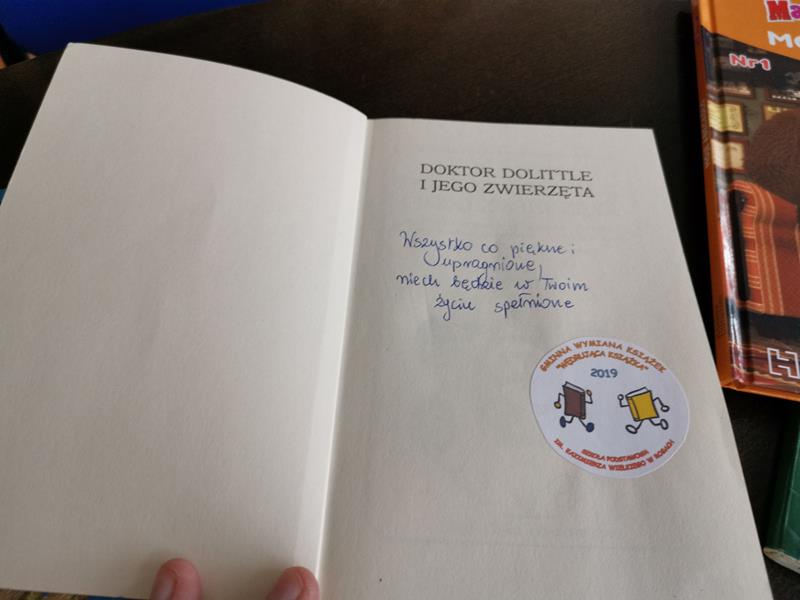 DOKTOR DOLITTLE
I JEGO ZWIERZĘTA
Wszystko co piękne i
upragnione,
niech będzie w Twoim
życiu spełnione
GMINNA WYMIANA KSIĄŻEK
"WĘDRUJĄCA KSIĄŻKA"
2019
SZKOŁA PODSTAWOWA
IM. KAZIMIERZA WIELKIEGO W ROGACH
Ma
Me
Nr1
H